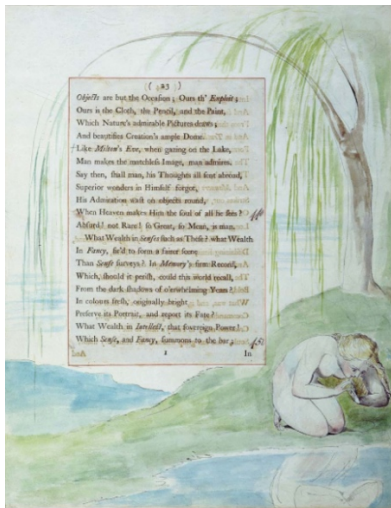 ( 23 )
Objects are but the Occasion; Ours th' Exploit;
Ours is the Cloth, the Pencil, and the Paint,
Which Nature's admirable Picture draws;
And beautifies Creation's ample Dome.
Like Milton's Eve, when gazing on the Lake,
Man makes the matchless Image, man admires.
Say then, shall man, his Thoughts all sent abroad,
Superior wonders in Himself forgot,
His Admiration waste on objects round,
When Heaven makes Him the soul of all he sees?
Absurd! not Rare! so Great, so Mean, is man.
What Wealth in Senses such as These? what Wealth
In Fancy, fir'd to form a fairer scene
Than Sense surveys? In Memory's firm Record,
Which, should it perish, could this world recall,
From the dark shadows of o'erwhelming Years?
In colours fresh, originally bright
Preserve its Portrait, and report its Fate?
What Wealth in Intellect, that sovereign Power!
Which Sense, and Fancy, summons to the bar;
And
In